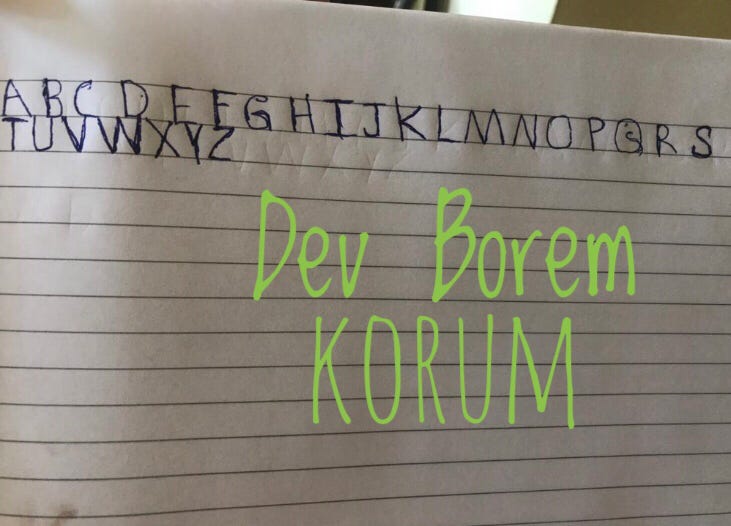 A B C D E F G H I J K L M N O P Q R S
T U V W X Y Z
Dev Borem
KORUM